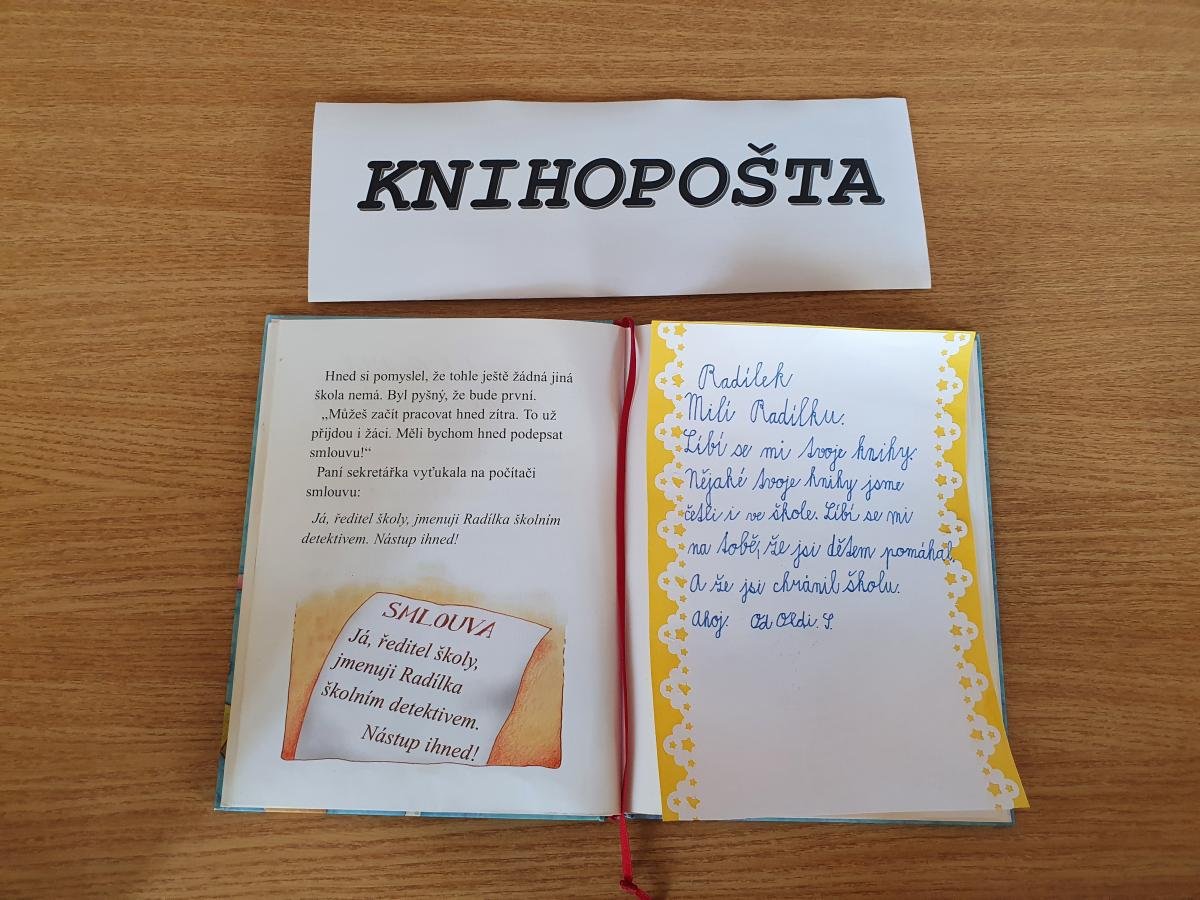 KNIHOPOŠTA
Hned si pomyslel, že tohle ještě žádná jiná
škola nemá. Byl pyšný, že bude první.
„Můžeš začít pracovat hned zítra. To už
přijdou i žáci. Měli bychom hned podepsat
smlouvu!“
Paní sekretářka vyťukala na počítači
smlouvu:
Já, ředitel školy, jmenuji Radílka školním
detektivem. Nástup ihned!
SMLOUVA
Já, ředitel školy,
jmenuji Radílka
školním detektivem.
Nástup ihned!
Radílek
Milí Radílku.
Líbí se mi tvoje knihy.
Nějaké tvoje knihy jsme
četli i ve škole. Líbí se mi
na tobě, že jsi dětem pomáhal.
A že jsi chránil školu.
Ahoj. Od Oldi. S.